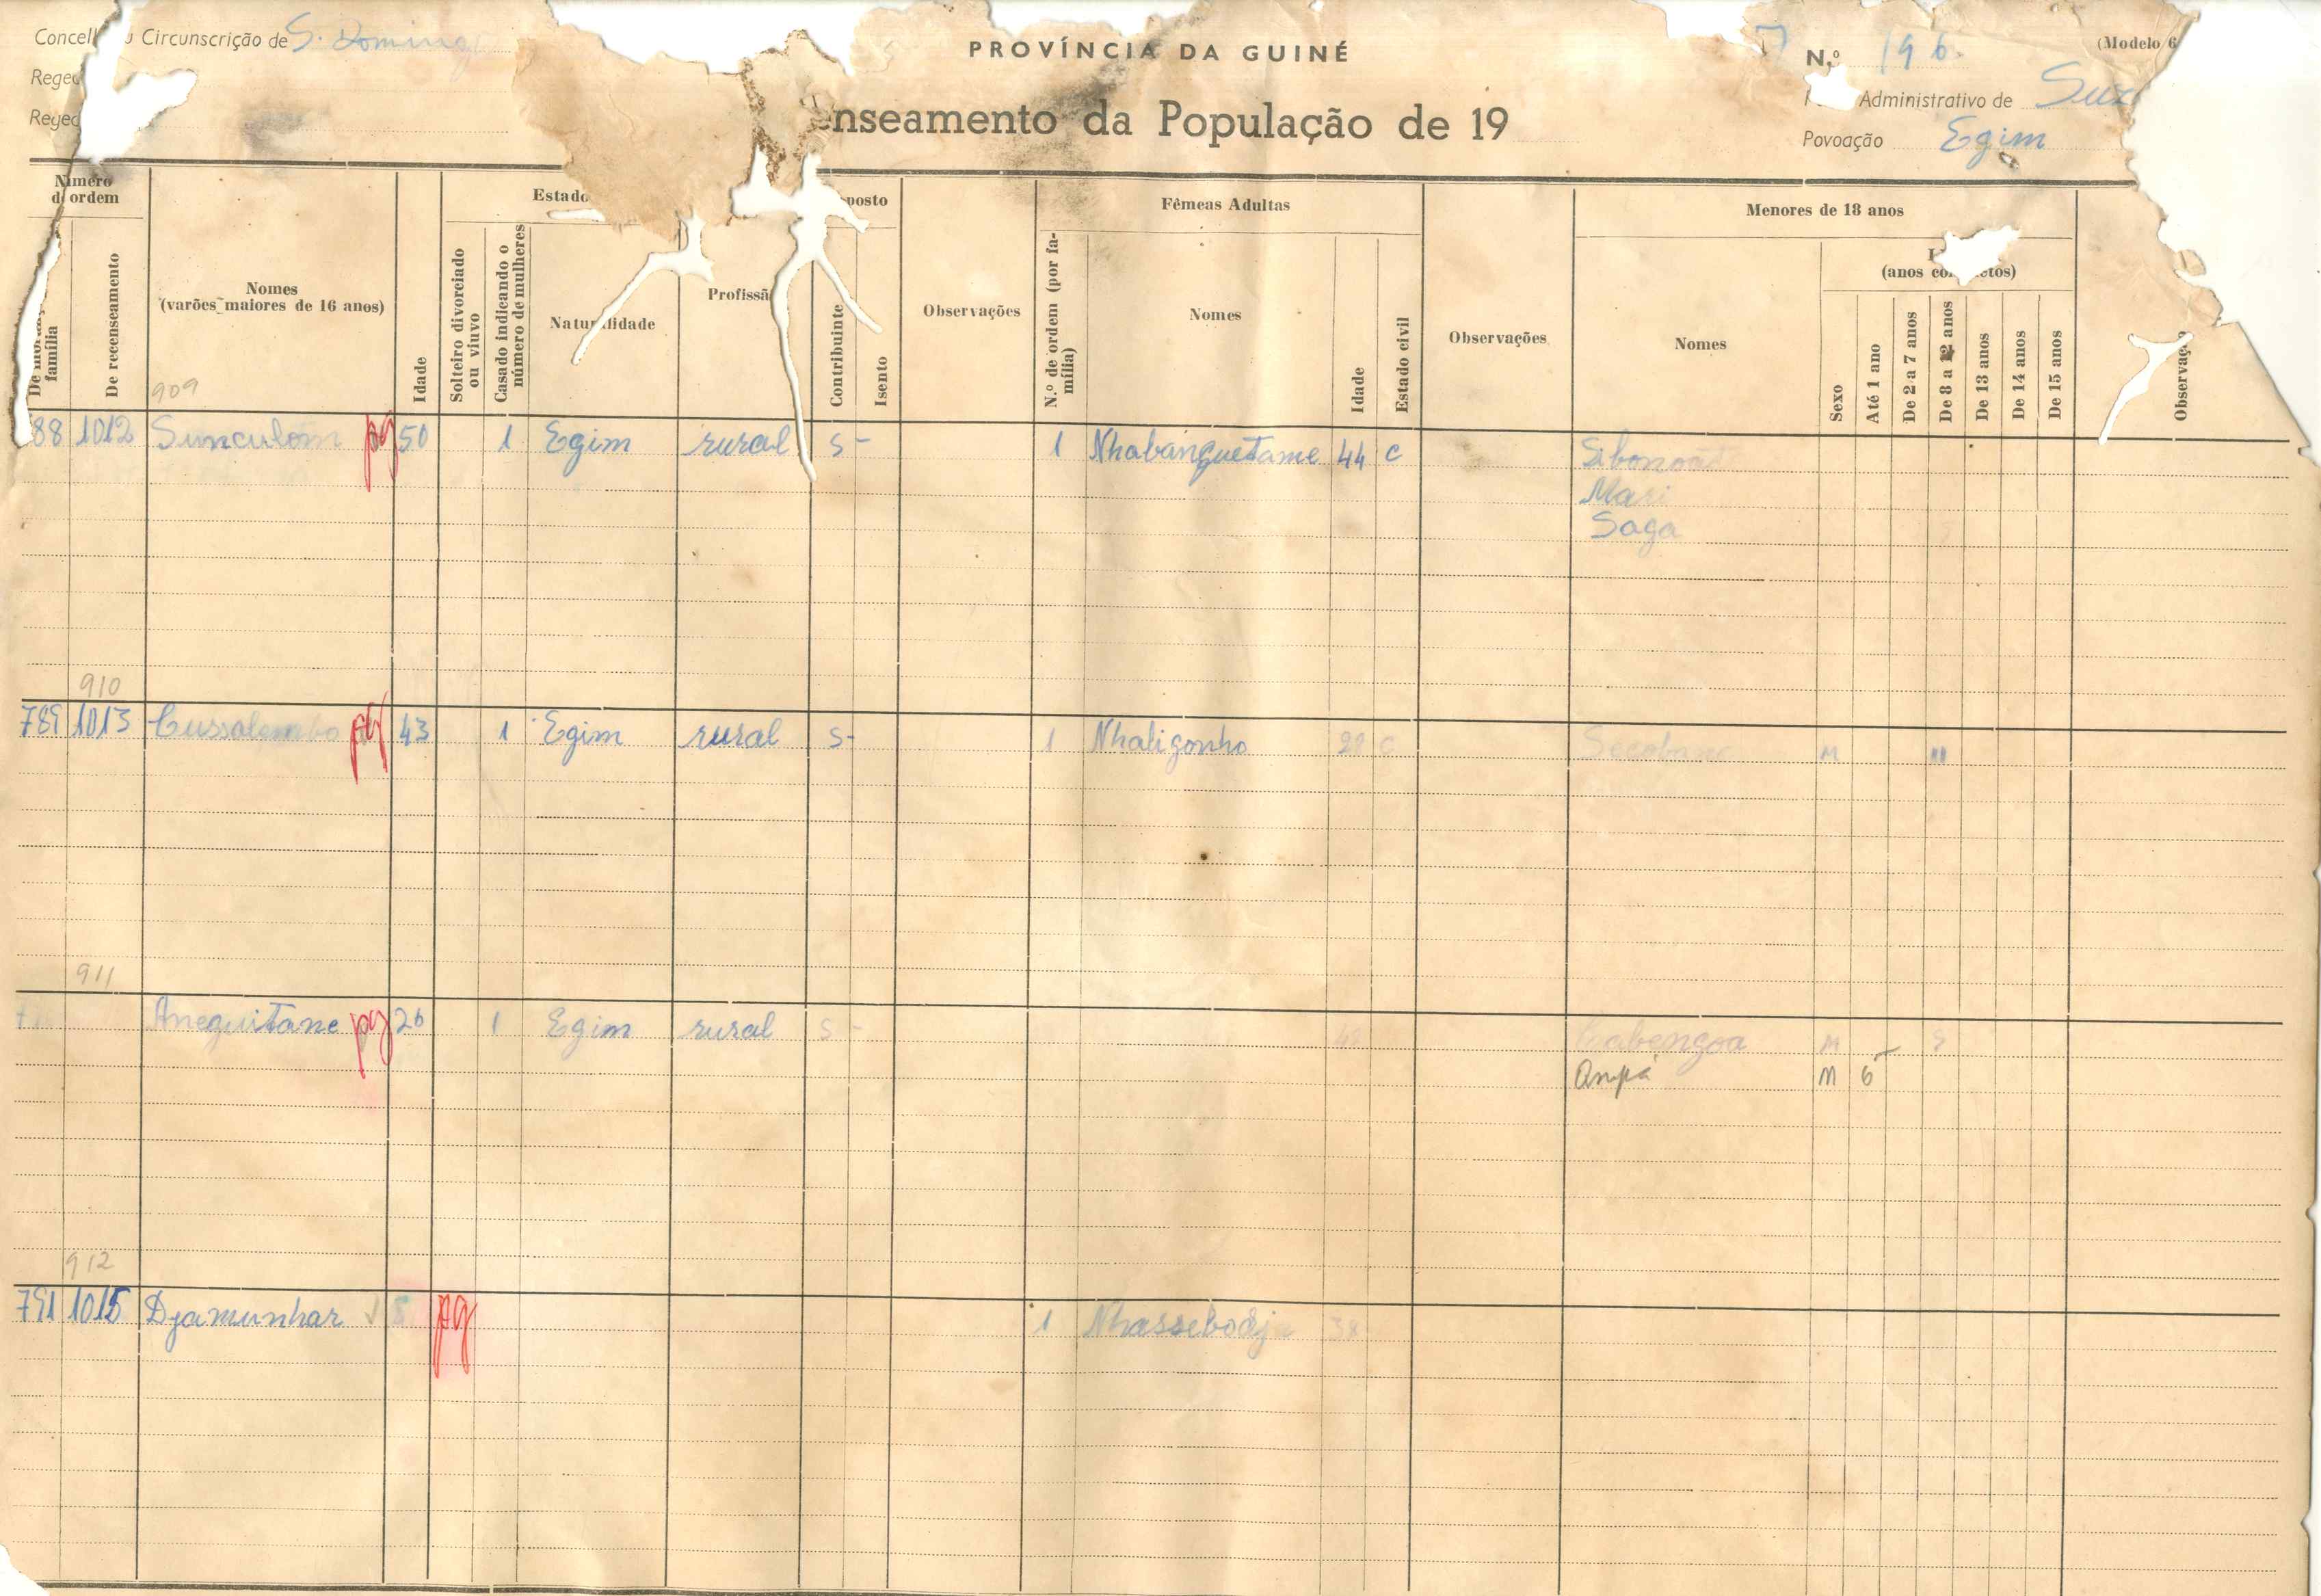 Circunscrição de S. Doming
PROVÍNCIA DA GUINÉ
N.º 196
(Modelo 6
Administrativo de Suz
enseamento da População de 19
Povoação Egim
Número de ordem
família
De recenseamento
Nomes
(varões maiores de 16 anos)
909
Idade
Estado
Solteiro divorciado ou viuvo
Casado indicando o número de mulheres
Naturalidade
Profissã
posto
Contribuinte
Isento
Observações
Fêmeas Adultas
N.º de ordem (por família)
Nomes
Idade
Estado civil
Observações
Menores de 18 anos
Nomes
Sexo
(anos completos)
Até 1 ano
De 2 a 7 anos
De 8 a 12 anos
De 13 anos
De 14 anos
De 15 anos
Observaçõ
88 1012 Sunculom pg 50 1 Egim rural S - 1 Nhabanguetame 44 C
Mari
Saga
910
789 1013 Cussalembo pg 43 1 Egim rural S - 1 Nhaligonho 29 C M 11
911
Aneguitane pg 26 1 Egim rural S - Cabengoa M
Anpá M 6
912
791 1015 Djamunhar pg 1 38